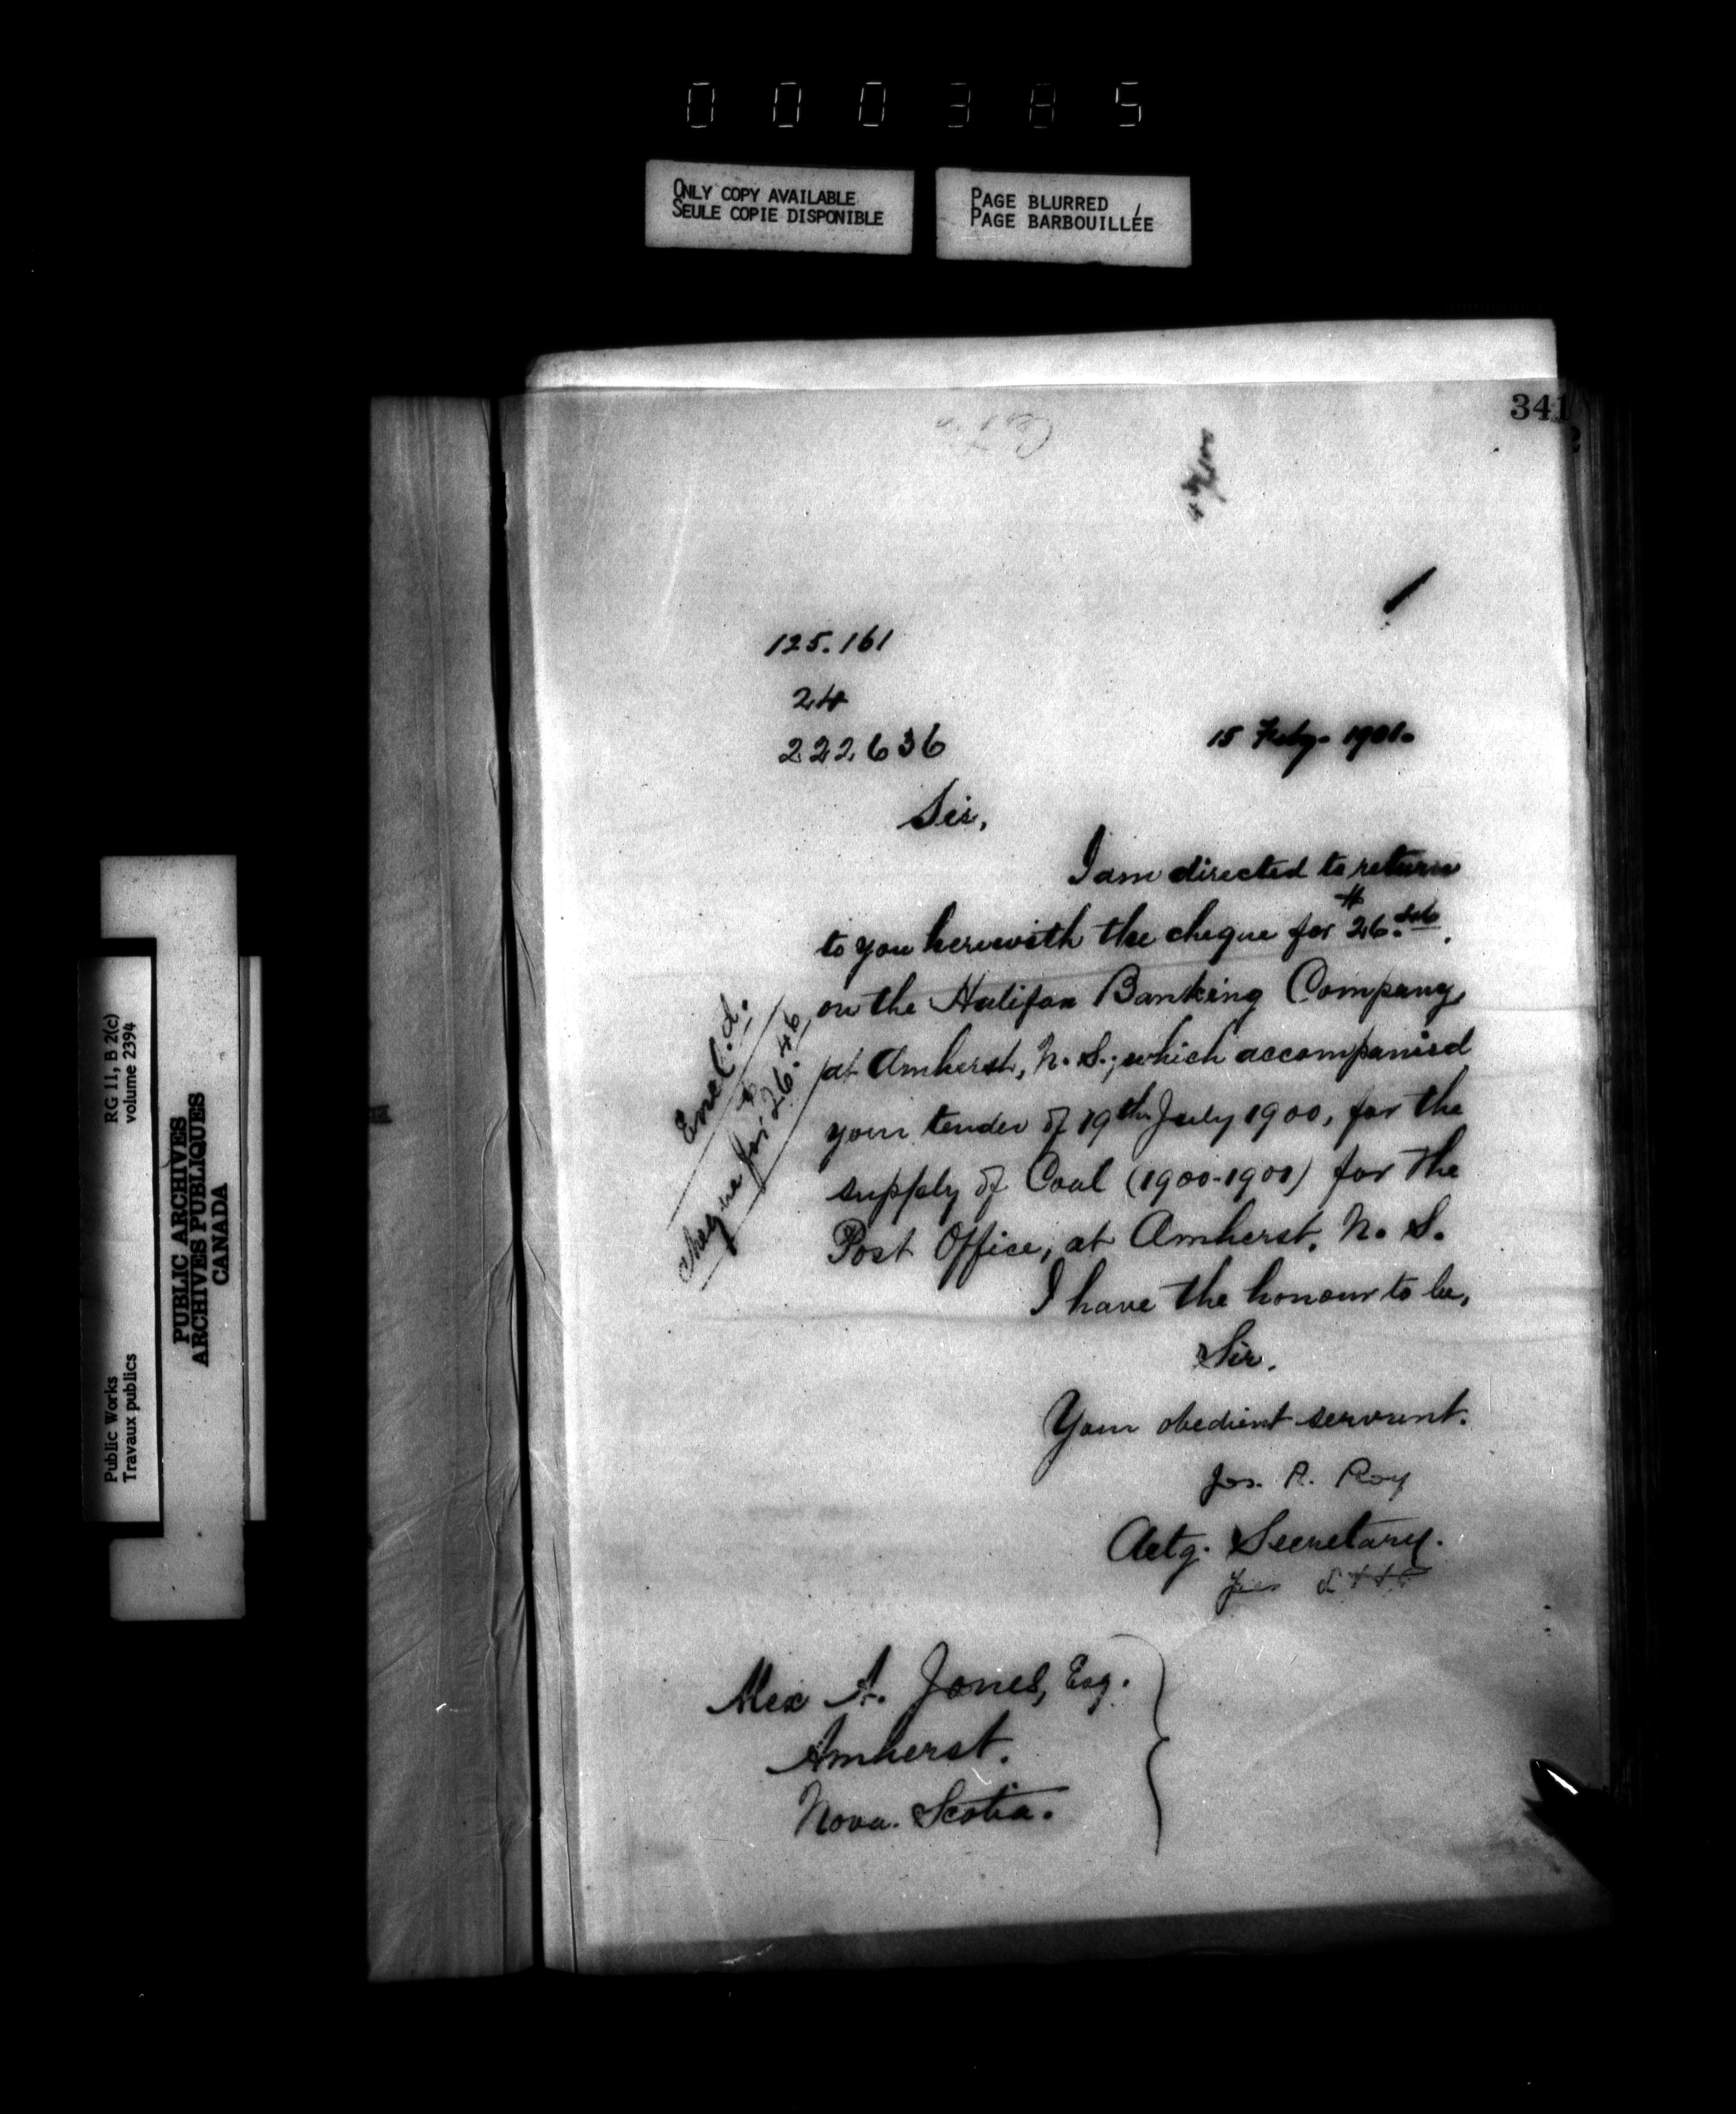 000385
ONLY COPY AVAILABLE
SEULE COPIE DISPONIBLE
PAGE BLURRED
PAGE BARBOUILLÉE
341
125.161
24
222636
15 Feby. 1901.
Sir,
I am directed to return
to you herewith the cheque for $26.46.
on the Halifax Banking Company,
at Amherst, N. S., which accompanied
your tender of 19th July 1900, for the
supply of Coal (1900-1901) for the
Post Office, at Amherst, N. S.
I have the honour to be,
Sir.
Your obedient servant.
Jos. R. Roy
Actg. Secretary.
Encl.d.
cheque for $26.46
Alex A. Jones, Esq.
Amherst.
Nova. Scotia.
Public Works
Travaux publics
RG 11, B 2(c)
volume 2394
PUBLIC ARCHIVES
ARCHIVES PUBLIQUES
CANADA